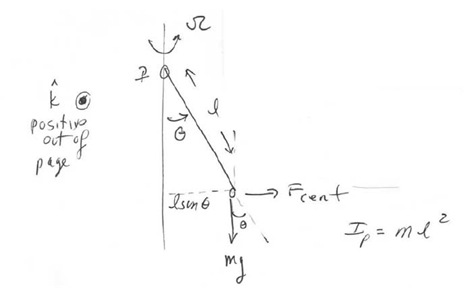 Ω
P
k̂
positive
out of
page
θ
l
l sin θ
F cent
θ
mg
I_p = m l²